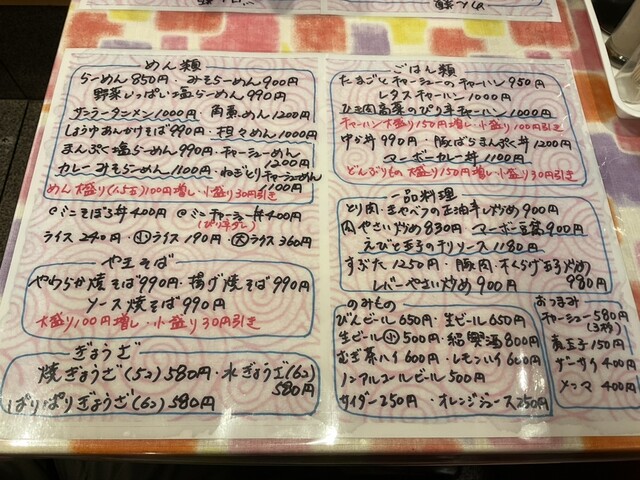 めん類
らーめん850円・みそらーめん900円
野菜いっぱい塩らーめん990円
サンラータンメン1000円・角煮めん1200円
しょうゆあんかけそば990円・担々めん1000円
まんぷく塩らーめん990円・チャーシューめん1200円
カレーみそらーめん1100円・ねぎとりチャーシューめん1100円
めん大盛り(1.5玉)100円増し・小盛り30円引き
@ミニそぼろ丼400円 @ミニチャーシュー丼400円
(ぴり辛ダレ)
ライス240円・小ライス190円・大ライス360円
やきそば
やわらか焼そば990円・揚げ焼そば990円
ソース焼そば990円
大盛り100円増し・小盛り30円引き
ぎょうざ
焼ぎょうざ(5コ)580円・水ぎょうざ(6コ)580円
ぱりぱりぎょうざ(6コ)580円
ごはん類
たまごとチャーシューのチャーハン950円
レタスチャーハン1000円
ひき肉高菜のぴり辛チャーハン1000円
チャーハン大盛り150円増し・小盛100円引き
中か丼990円・豚ばらまんぷく丼1200円
マーボーカレー丼1100円
どんぶりもの大盛り150円増し・小盛り30円引き
一品料理
とり肉・キャベツの正油辛し炒め900円
肉やさい炒め830円・マーボー豆腐900円
えびと玉子のチリソース1180円
すぶた1250円・豚肉・木くらげ玉子炒め980円
レバーやさい炒め900円
のみもの
びんビール650円・生ビール650円
生ビール小500円・紹興酒800円
むぎ茶ハイ600円・レモンハイ600円
ノンアルコールビール500円
サイダー250円・オレンジジュース250円
おつまみ
チャーシュー580円
(3枚)
煮玉子150円
ザーサイ400円
メンマ400円